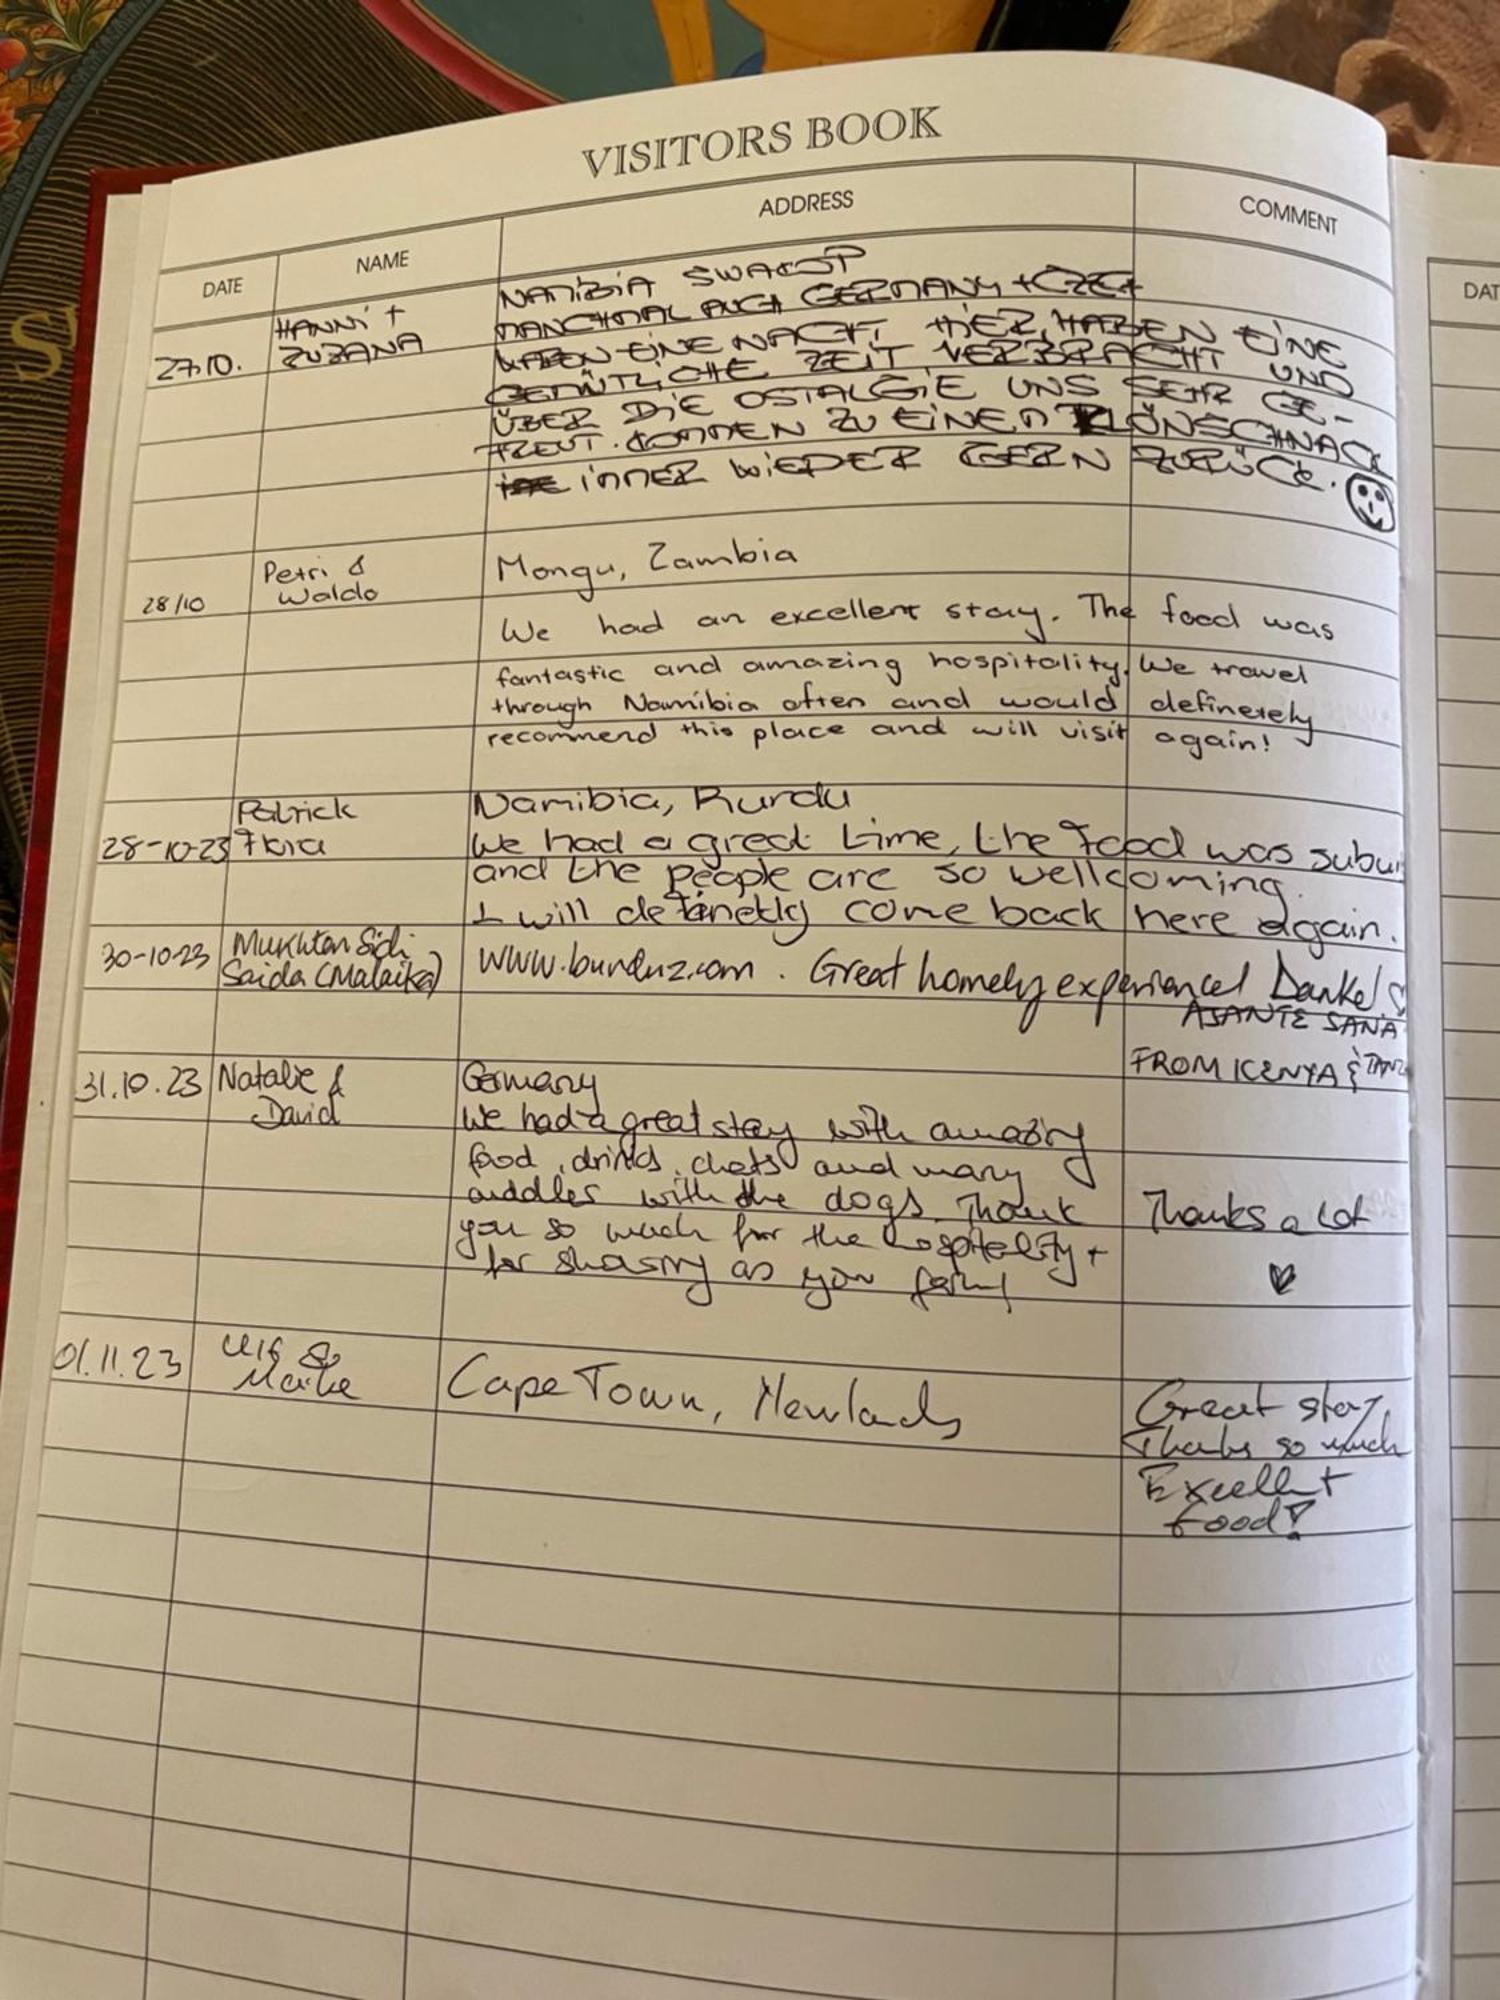 VISITORS BOOK
DATE NAME ADDRESS COMMENT
DAT
27.10. HANNI + ZUZANA
NAMIBIA SWAKOP
MANCHMAL AUCH GERMANY + CZECH
WAREN EINE NACHT HIER, HABEN EINE
GEMÜTLICHE ZEIT VERBRACHT UND
ÜBER DIE OSTALGIE UNS SEHR GE-
FREUT. KOMMEN ZU EINEM KLÖNSCHNACK
IMMER WIEDER GERN ZURÜCK.
28/10 Petri & Waldo
Mongu, Zambia
We had an excellent stay. The food was
fantastic and amazing hospitality. We travel
through Namibia often and would definetely
recommend this place and will visit again!
28-10-23 Patrick
Namibia, Rundu
We had a great time, the food was subur
and the people are so wellcoming.
I will definetly come back here again.
30-10-23 Mukhtar Sidi
Saida (Malaika)
www.bunduz.com. Great homely experience! Danke!
ASANTE SANA
FROM KENYA & TANZ
31.10.23 Natalie &
David
Germany
We had a great stay with amazing
food, drinks, chats and many
cuddles with the dogs. Thank
you so much for the hospitality +
for sharing as you
Thanks a lot
01.11.23 Ulf &
Maike
Cape Town, Newlands
Great stay,
Thanks so much
Excellent
food!